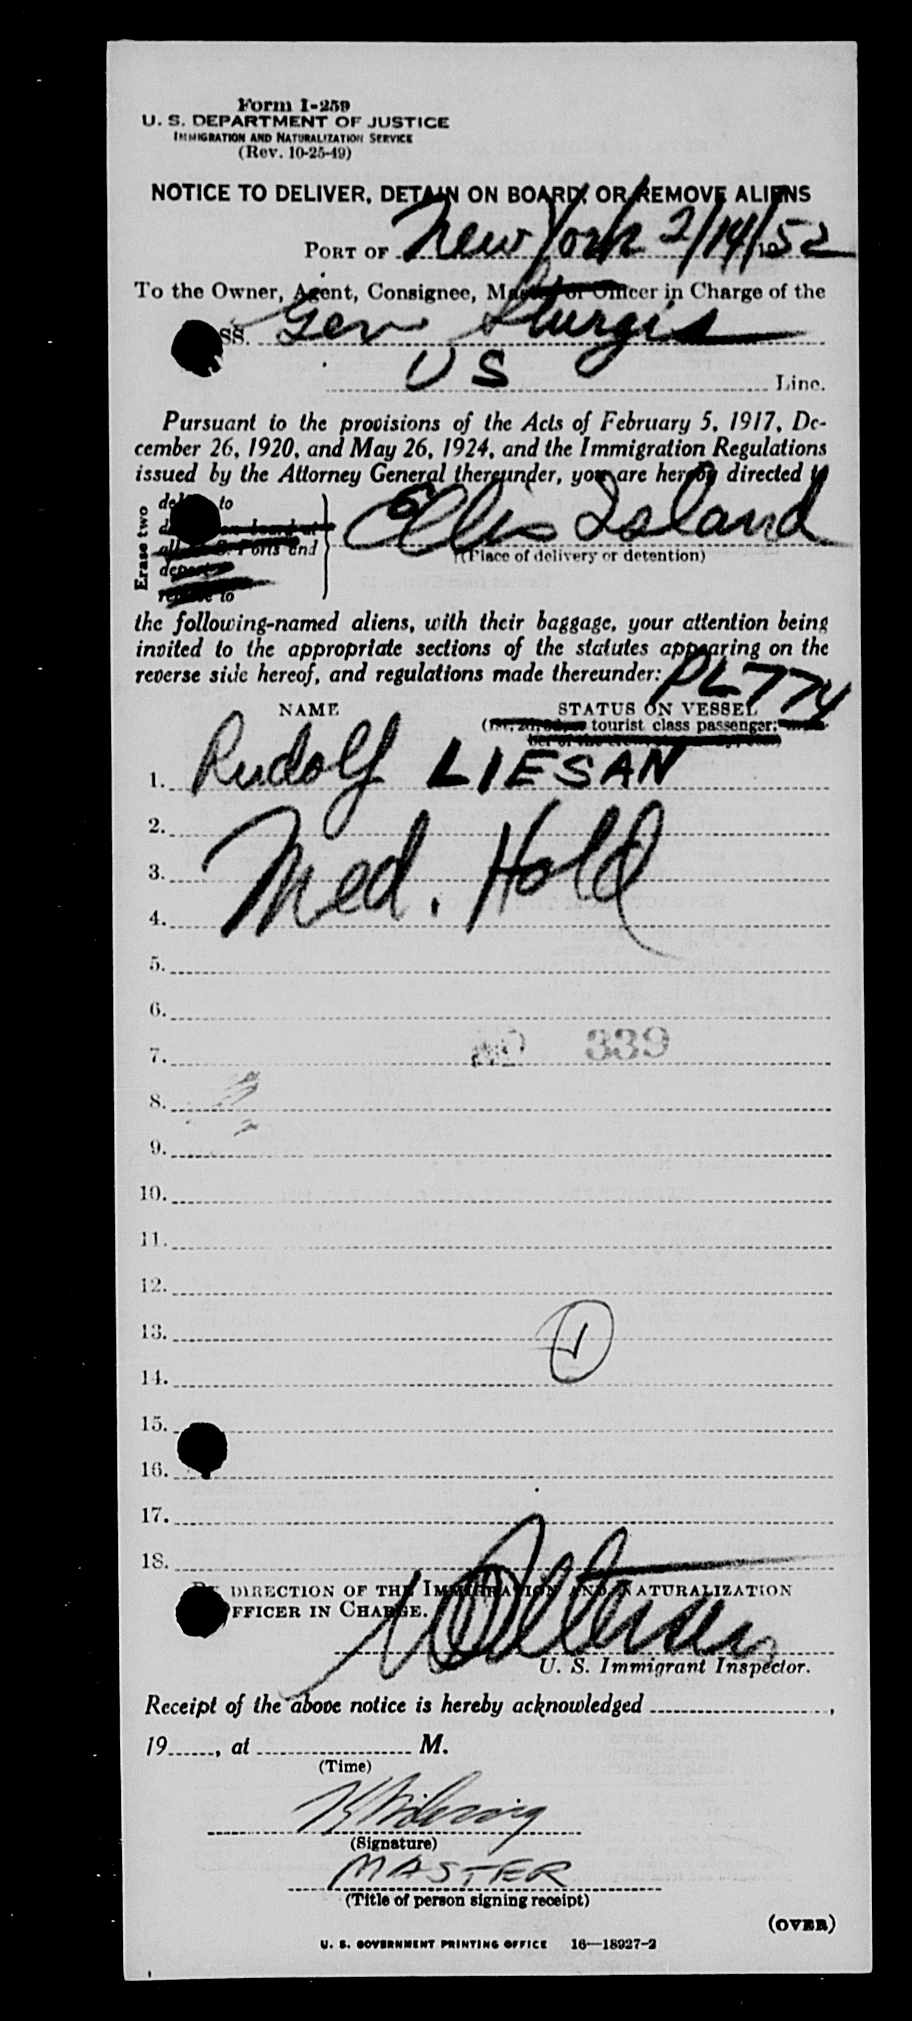 Form I-259
U. S. DEPARTMENT OF JUSTICE
IMMIGRATION AND NATURALIZATION SERVICE
(Rev. 10-25-49)
NOTICE TO DELIVER, DETAIN ON BOARD, OR REMOVE ALIENS
PORT OF New York 2/14/1952
To the Owner, Agent, Consignee, Master or Officer in Charge of the
SS. Gen Sturgis
US Line.
Pursuant to the provisions of the Acts of February 5, 1917, De-
cember 26, 1920, and May 26, 1924, and the Immigration Regulations
issued by the Attorney General thereunder, you are hereby directed
Erase two
to
Ports and
to
Ellis Island
(Place of delivery or detention)
the following-named aliens, with their baggage, your attention being
invited to the appropriate sections of the statutes appearing on the
reverse side hereof, and regulations made thereunder: PL 774
NAME STATUS ON VESSEL
tourist class passenger;
1. Rudolf LIESAN
2.
3. Med. Hold
4.
5.
6.
7. 339
8.
9.
10.
11.
12.
13.
14.
15.
16.
17.
18.
BY DIRECTION OF THE IMMIGRATION AND NATURALIZATION
OFFICER IN CHARGE.
U. S. Immigrant Inspector.
Receipt of the above notice is hereby acknowledged ,
19 , at M.
(Time)
(Signature)
MASTER
(Title of person signing receipt)
(OVER)
U. S. GOVERNMENT PRINTING OFFICE 16—18927-2